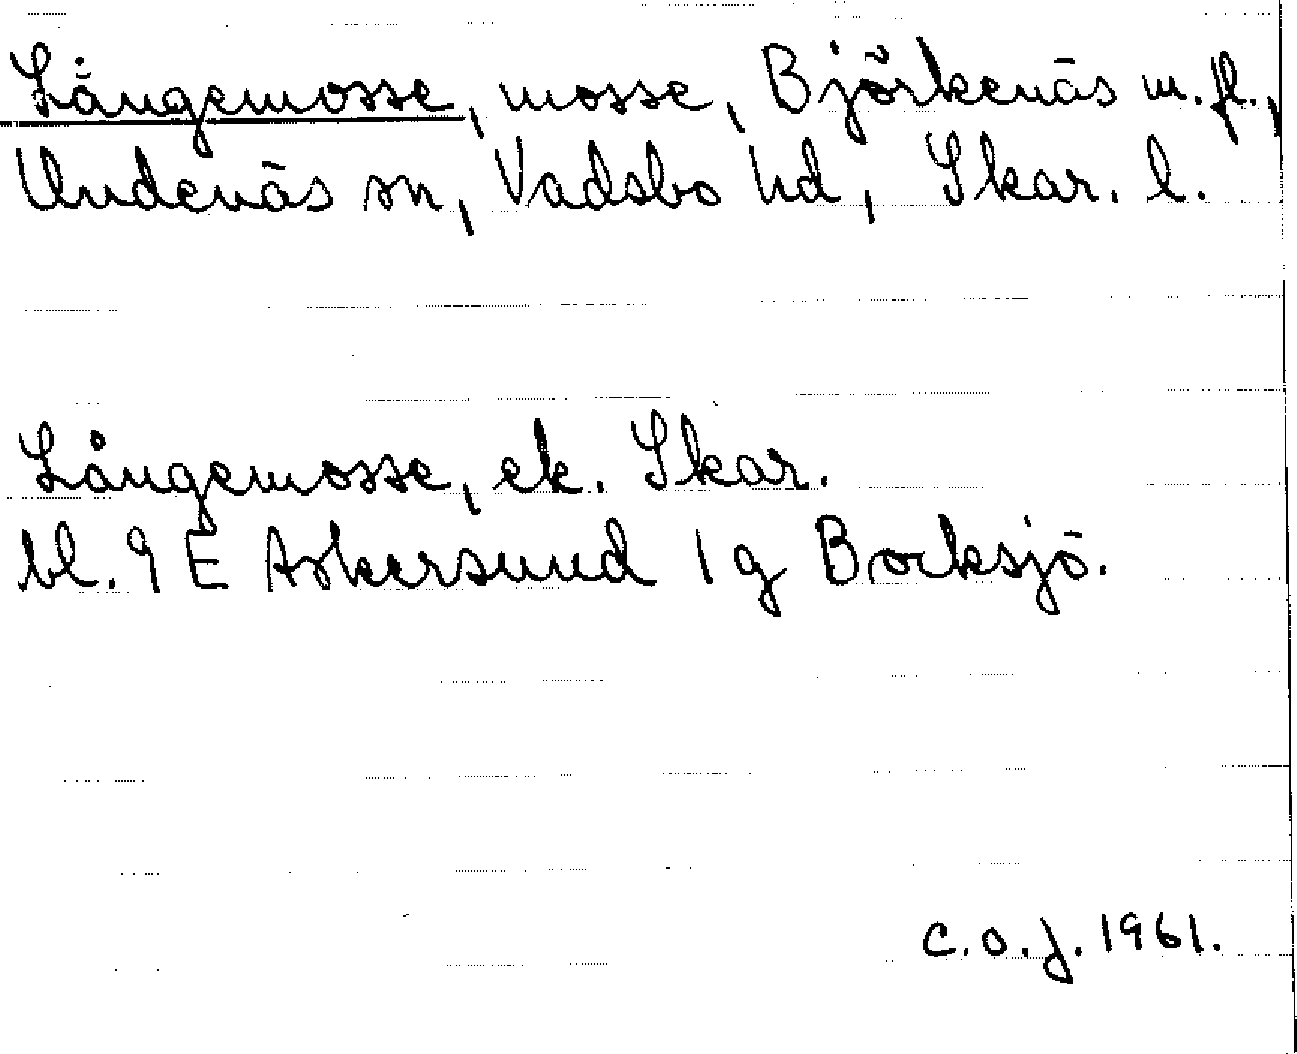 Långemosse, mosse, Björkenäs m.fl.,
Undenäs sn, Vadsbo hd, Skar. l.
Långemosse, ek. Skar.
bl. 9 E Askersund 1 g Bocksjö.
C.O.J. 1961.